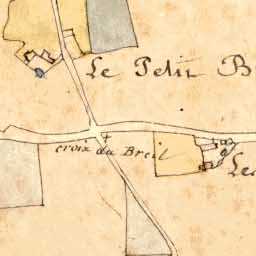 Le Petit B
croix du Breil
Le